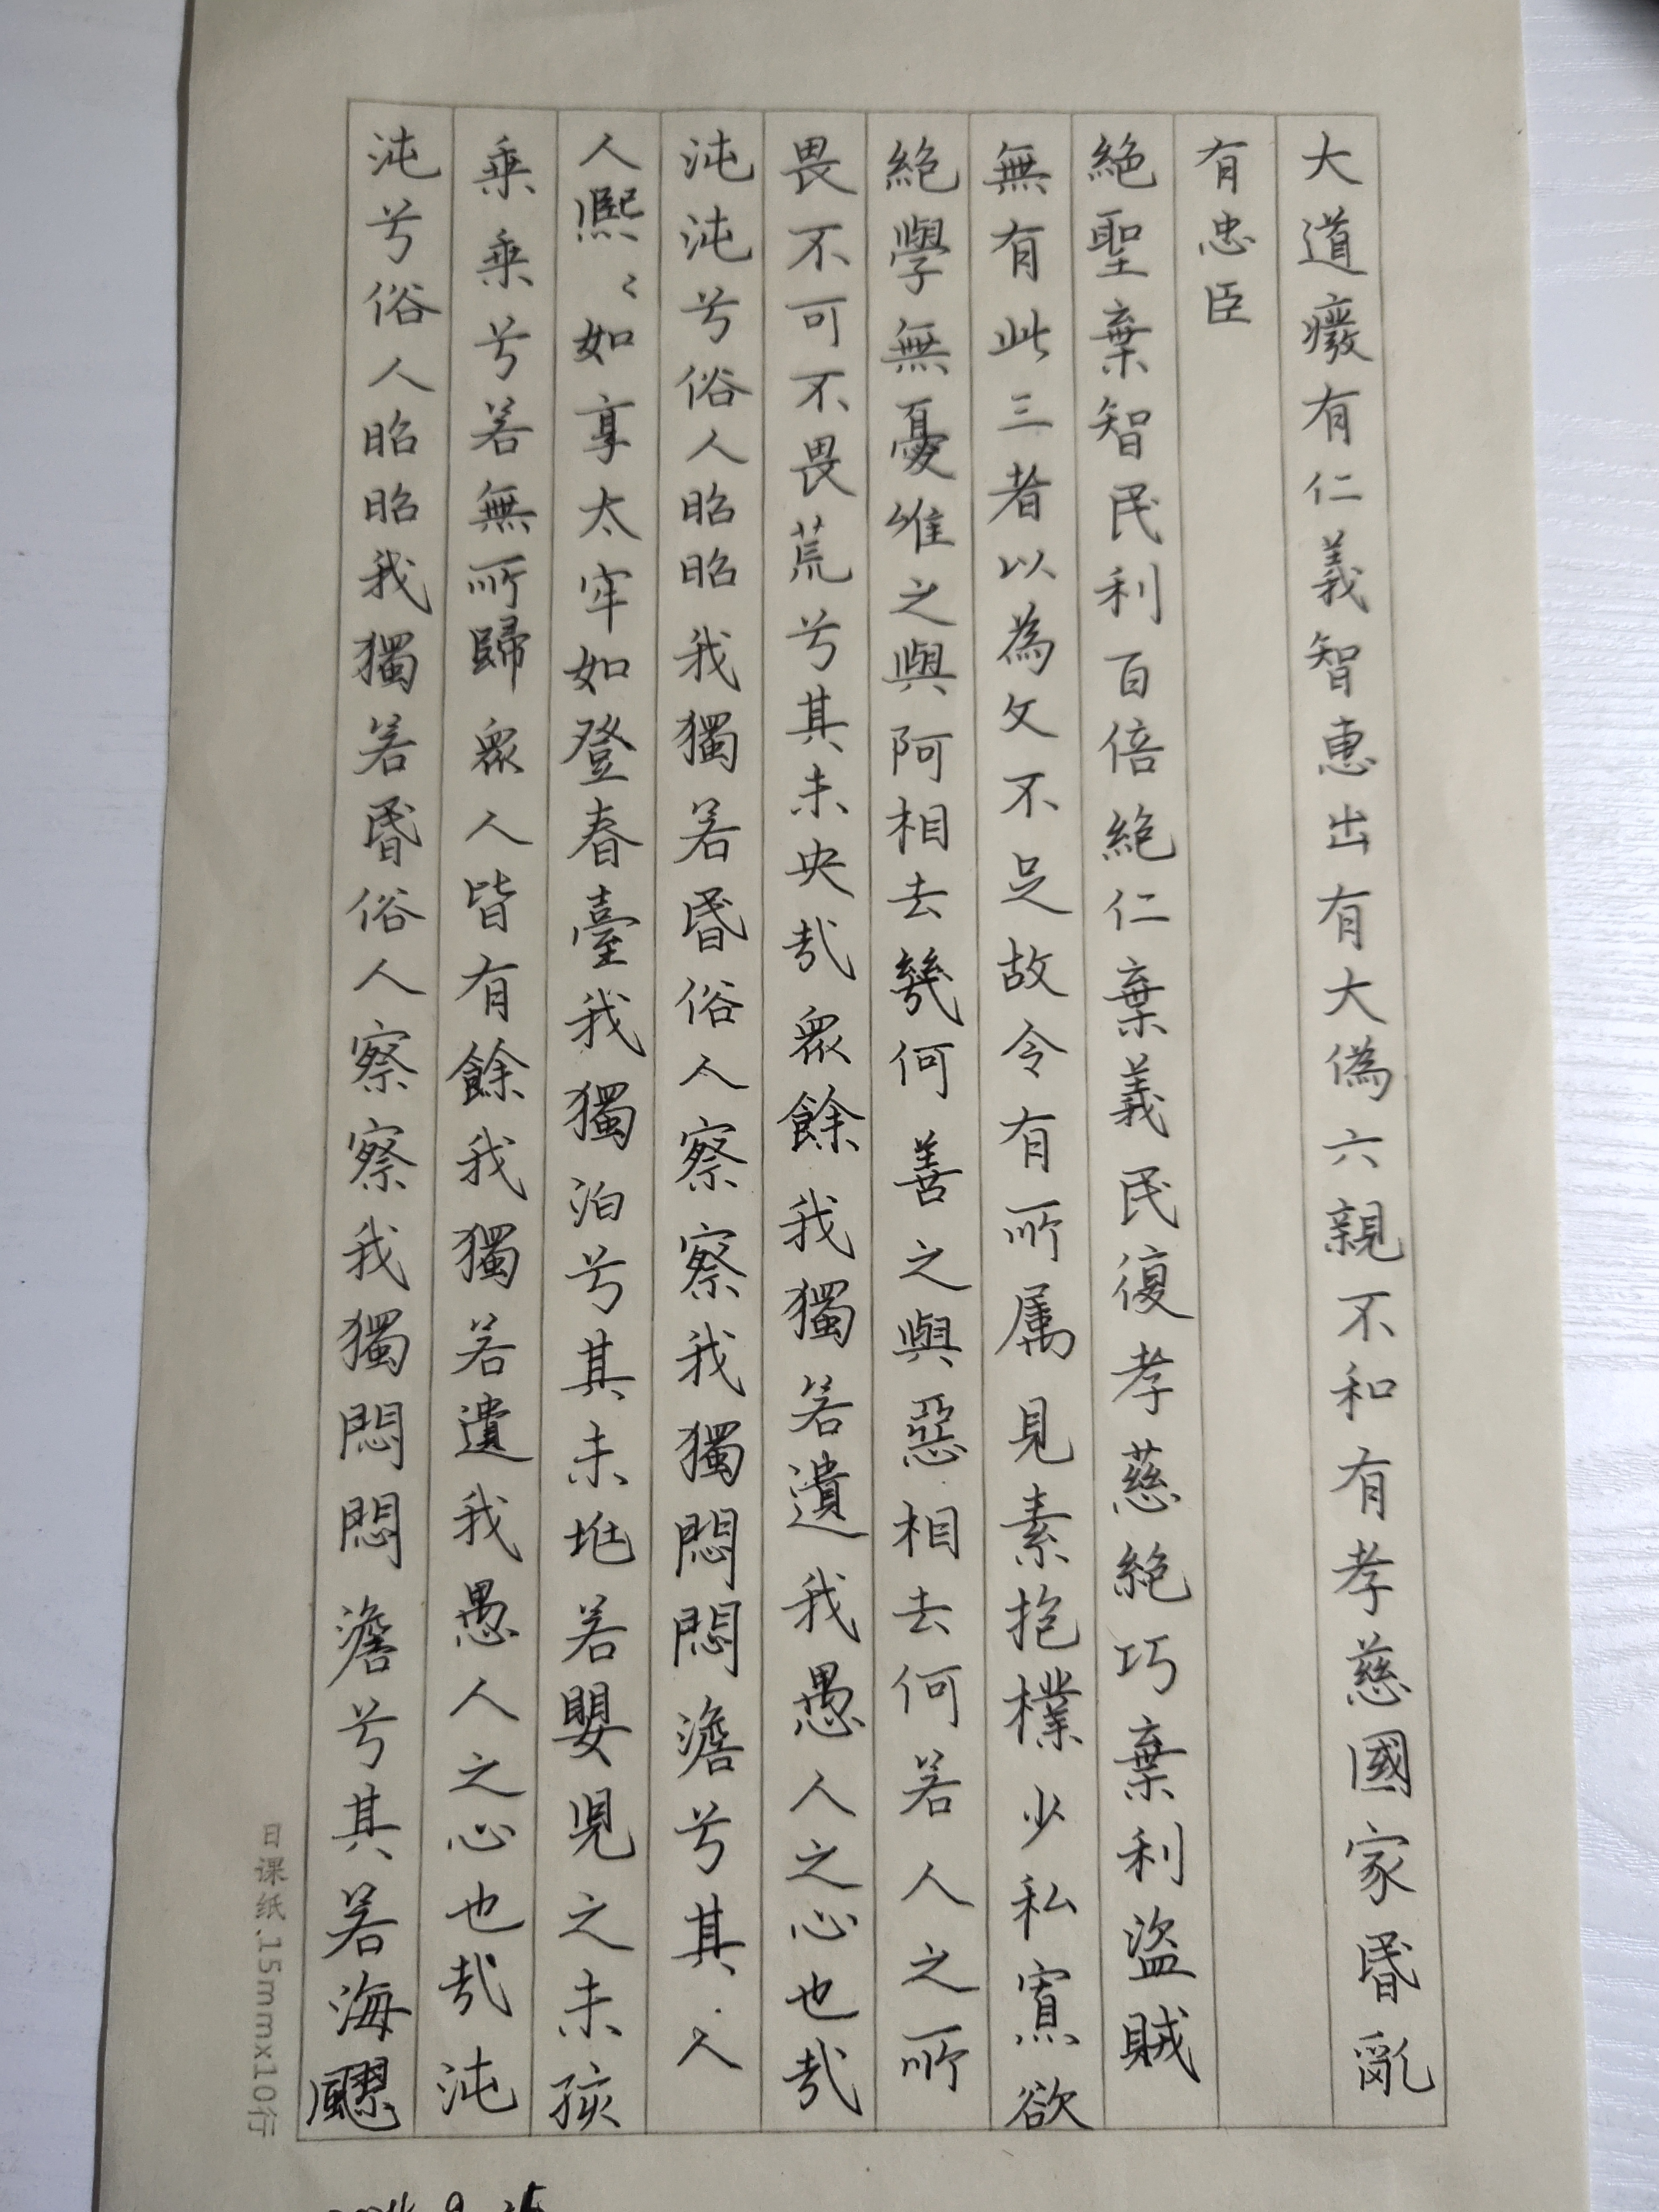 大道癈有仁義智惠出有大偽六親不和有孝慈國家昬亂
有忠臣
絶聖棄智民利百倍絶仁棄義民復孝慈絶巧棄利盜賊
無有此三者以為文不足故令有所属見素抱樸少私寡欲
絶學無憂唯之與阿相去幾何善之與惡相去何若人之所
畏不可不畏荒兮其未央哉衆餘我獨若遺我愚人之心也哉
沌沌兮俗人昭昭我獨若昬俗人察察我獨悶悶澹兮其人
人熈〻如享太牢如登春臺我獨泊兮其未兆若嬰児之未孩
乗乗兮若無所歸衆人皆有餘我獨若遺我愚人之心也哉沌
沌兮俗人昭昭我獨若昬俗人察察我獨悶悶澹兮其若海飂
日课纸.15mmx10行